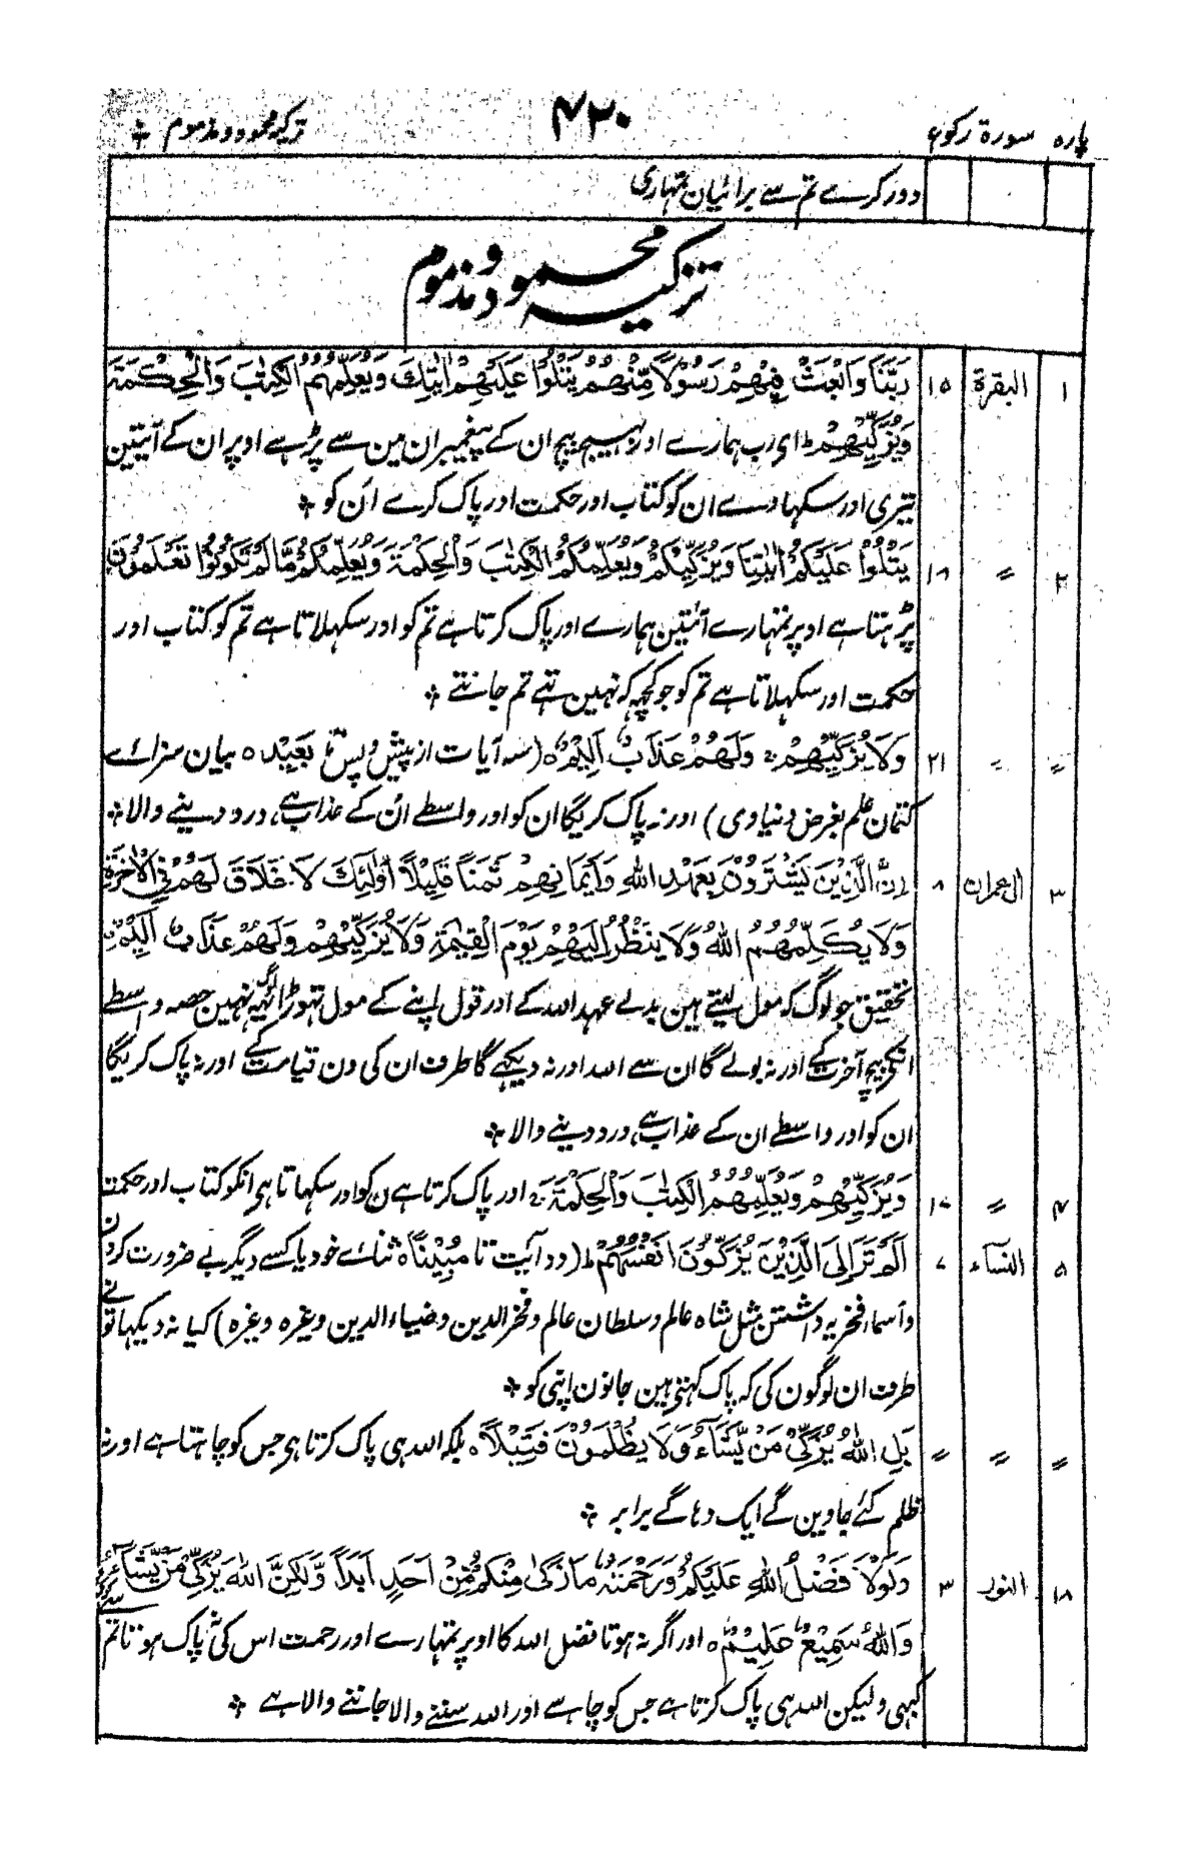 پارہ سورۃ رکوع ۴۳۰ تزکیہ محمود و مذموم
دور کرے تم سے برائیان تمہاری
تزکیہ محمود و مذموم
۱ البقرۃ ۱۵ رَبَّنَا وَابْعَثْ فِيْهِمْ رَسُوْلًا مِّنْهُمْ يَتْلُوْا عَلَيْهِمْ اٰيٰتِكَ وَيُعَلِّمُهُمُ الْكِتٰبَ وَالْحِكْمَةَ
وَيُزَكِّيْهِمْ ط ای رب ہمارے اور بہیج بیچ ان کے پیغمبر ان مین سے پڑہے اوپر ان کے آیتین
تیری اور سکہادے ان کو کتاب اور حکمت اور پاک کرے اُن کو
۲ = ۱۸ يَتْلُوْا عَلَيْكُمْ اٰيٰتِنَا وَيُزَكِّيْكُمْ وَيُعَلِّمُكُمُ الْكِتٰبَ وَالْحِكْمَةَ وَيُعَلِّمُكُمْ مَّا لَمْ تَكُوْنُوْا تَعْلَمُوْنَ
پڑہتا ہے اوپر تمہارے آئتین ہمارے اور پاک کرتا ہے تم کو اور سکہلاتا ہے تم کو کتاب اور
حکمت اور سکہلاتا ہے تم کو جو کچہہ کہ نہین تہے تم جانتے
= = ۲۱ وَلَا يُزَكِّيْهِمْ وَلَهُمْ عَذَابٌ اَلِيْمٌ ہ (سہ آیات از پیش و پس تا بَعِيْدٍ ہ بیان سزائے
کتمان علم بغرض دنیاوی) اور نہ پاک کریگا ان کو اور واسطے اُن کے عذاب ہے، درد دینے والا
۳ ال عمران ۸ اِنَّ الَّذِيْنَ يَشْتَرُوْنَ بِعَهْدِ اللّٰهِ وَاَيْمَانِهِمْ ثَمَنًا قَلِيْلًا اُولٰٓئِكَ لَا خَلَاقَ لَهُمْ فِي الْاٰخِرَةِ
وَلَا يُكَلِّمُهُمُ اللّٰهُ وَلَا يَنْظُرُ اِلَيْهِمْ يَوْمَ الْقِيٰمَةِ وَلَا يُزَكِّيْهِمْ وَلَهُمْ عَذَابٌ اَلِيْمٌ
تحقیق جو لوگ کہ مول لیتے ہین بدلے عہد اللہ کے اور قول اپنے کے مول تہوڑا یہ لوگ نہین حصہ واسطے
انکے بیچ آخرت کے اور نہ بولے گا ان سے اللہ اور نہ دیکہے گا طرف ان کی دن قیامت کے اور نہ پاک کریگا
ان کو اور واسطے ان کے عذاب ہے، درد دینے والا
۴ = ۱۷ وَيُزَكِّيْهِمْ وَيُعَلِّمُهُمُ الْكِتٰبَ وَالْحِكْمَةَ اور پاک کرتا ہے ان کو اور سکہاتا ہی انکو کتاب اور حکمت
۵ النسآء ۷ اَلَمْ تَرَ اِلَى الَّذِيْنَ يُزَكُّوْنَ اَنْفُسَهُمْ ط (دو آیت تا مُبِيْنًا ہ ثنائے خود یا کسے دیگر بے ضرورت کردن
و اسماء فخریہ داشتن مثل شاہ عالم و سلطان عالم و فخر الدین و ضیاء الدین وغیرہ وغیرہ) کیا نہ دیکہا تونے
طرف ان لوگون کی کہ پاک کہتے ہین جانون اپنی کو
= = = بَلِ اللّٰهُ يُزَكِّيْ مَنْ يَّشَآءُ وَلَا يُظْلَمُوْنَ فَتِيْلًا ہ بلکہ اللہ ہی پاک کرتا ہی جس کو چاہتا ہے اور نہ
ظلم کئے جاوین گے ایک دہاگے برابر
۱۸ النور ۳ وَلَوْلَا فَضْلُ اللّٰهِ عَلَيْكُمْ وَرَحْمَتُهٗ مَا زَكٰى مِنْكُمْ مِّنْ اَحَدٍ اَبَدًا وَّلٰكِنَّ اللّٰهَ يُزَكِّيْ مَنْ يَّشَآءُ
وَاللّٰهُ سَمِيْعٌ عَلِيْمٌ ہ اور اگر نہ ہوتا فضل اللہ کا اوپر تمہارے اور رحمت اس کی نہ پاک ہوتا تم
کبہی ولیکن اللہ ہی پاک کرتا ہے جس کو چاہے اور اللہ سننے والا جاننے والا ہے